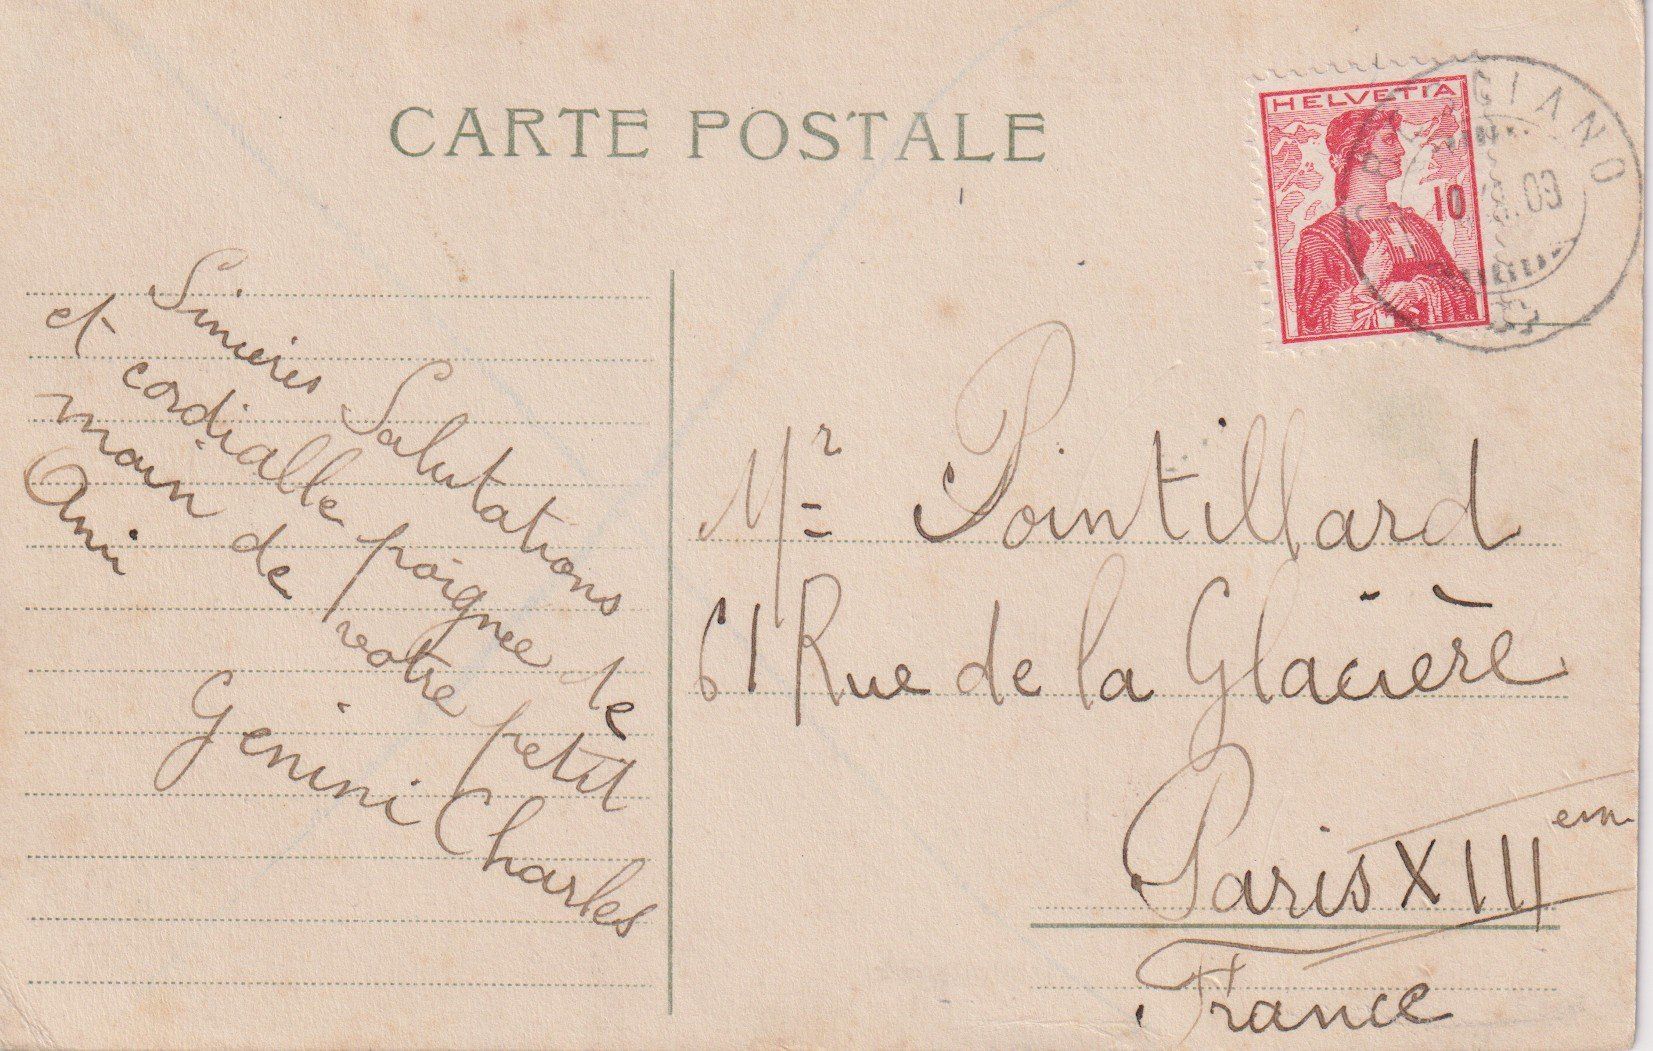 CARTE POSTALE
HELVETIA
10
GIANO
.09
Sincères Salutations
et cordialle poignee de
main de votre petit
Ami
Genini Charles
Mr Pointillard
61 Rue de la Glacière
Paris XIII eme
France